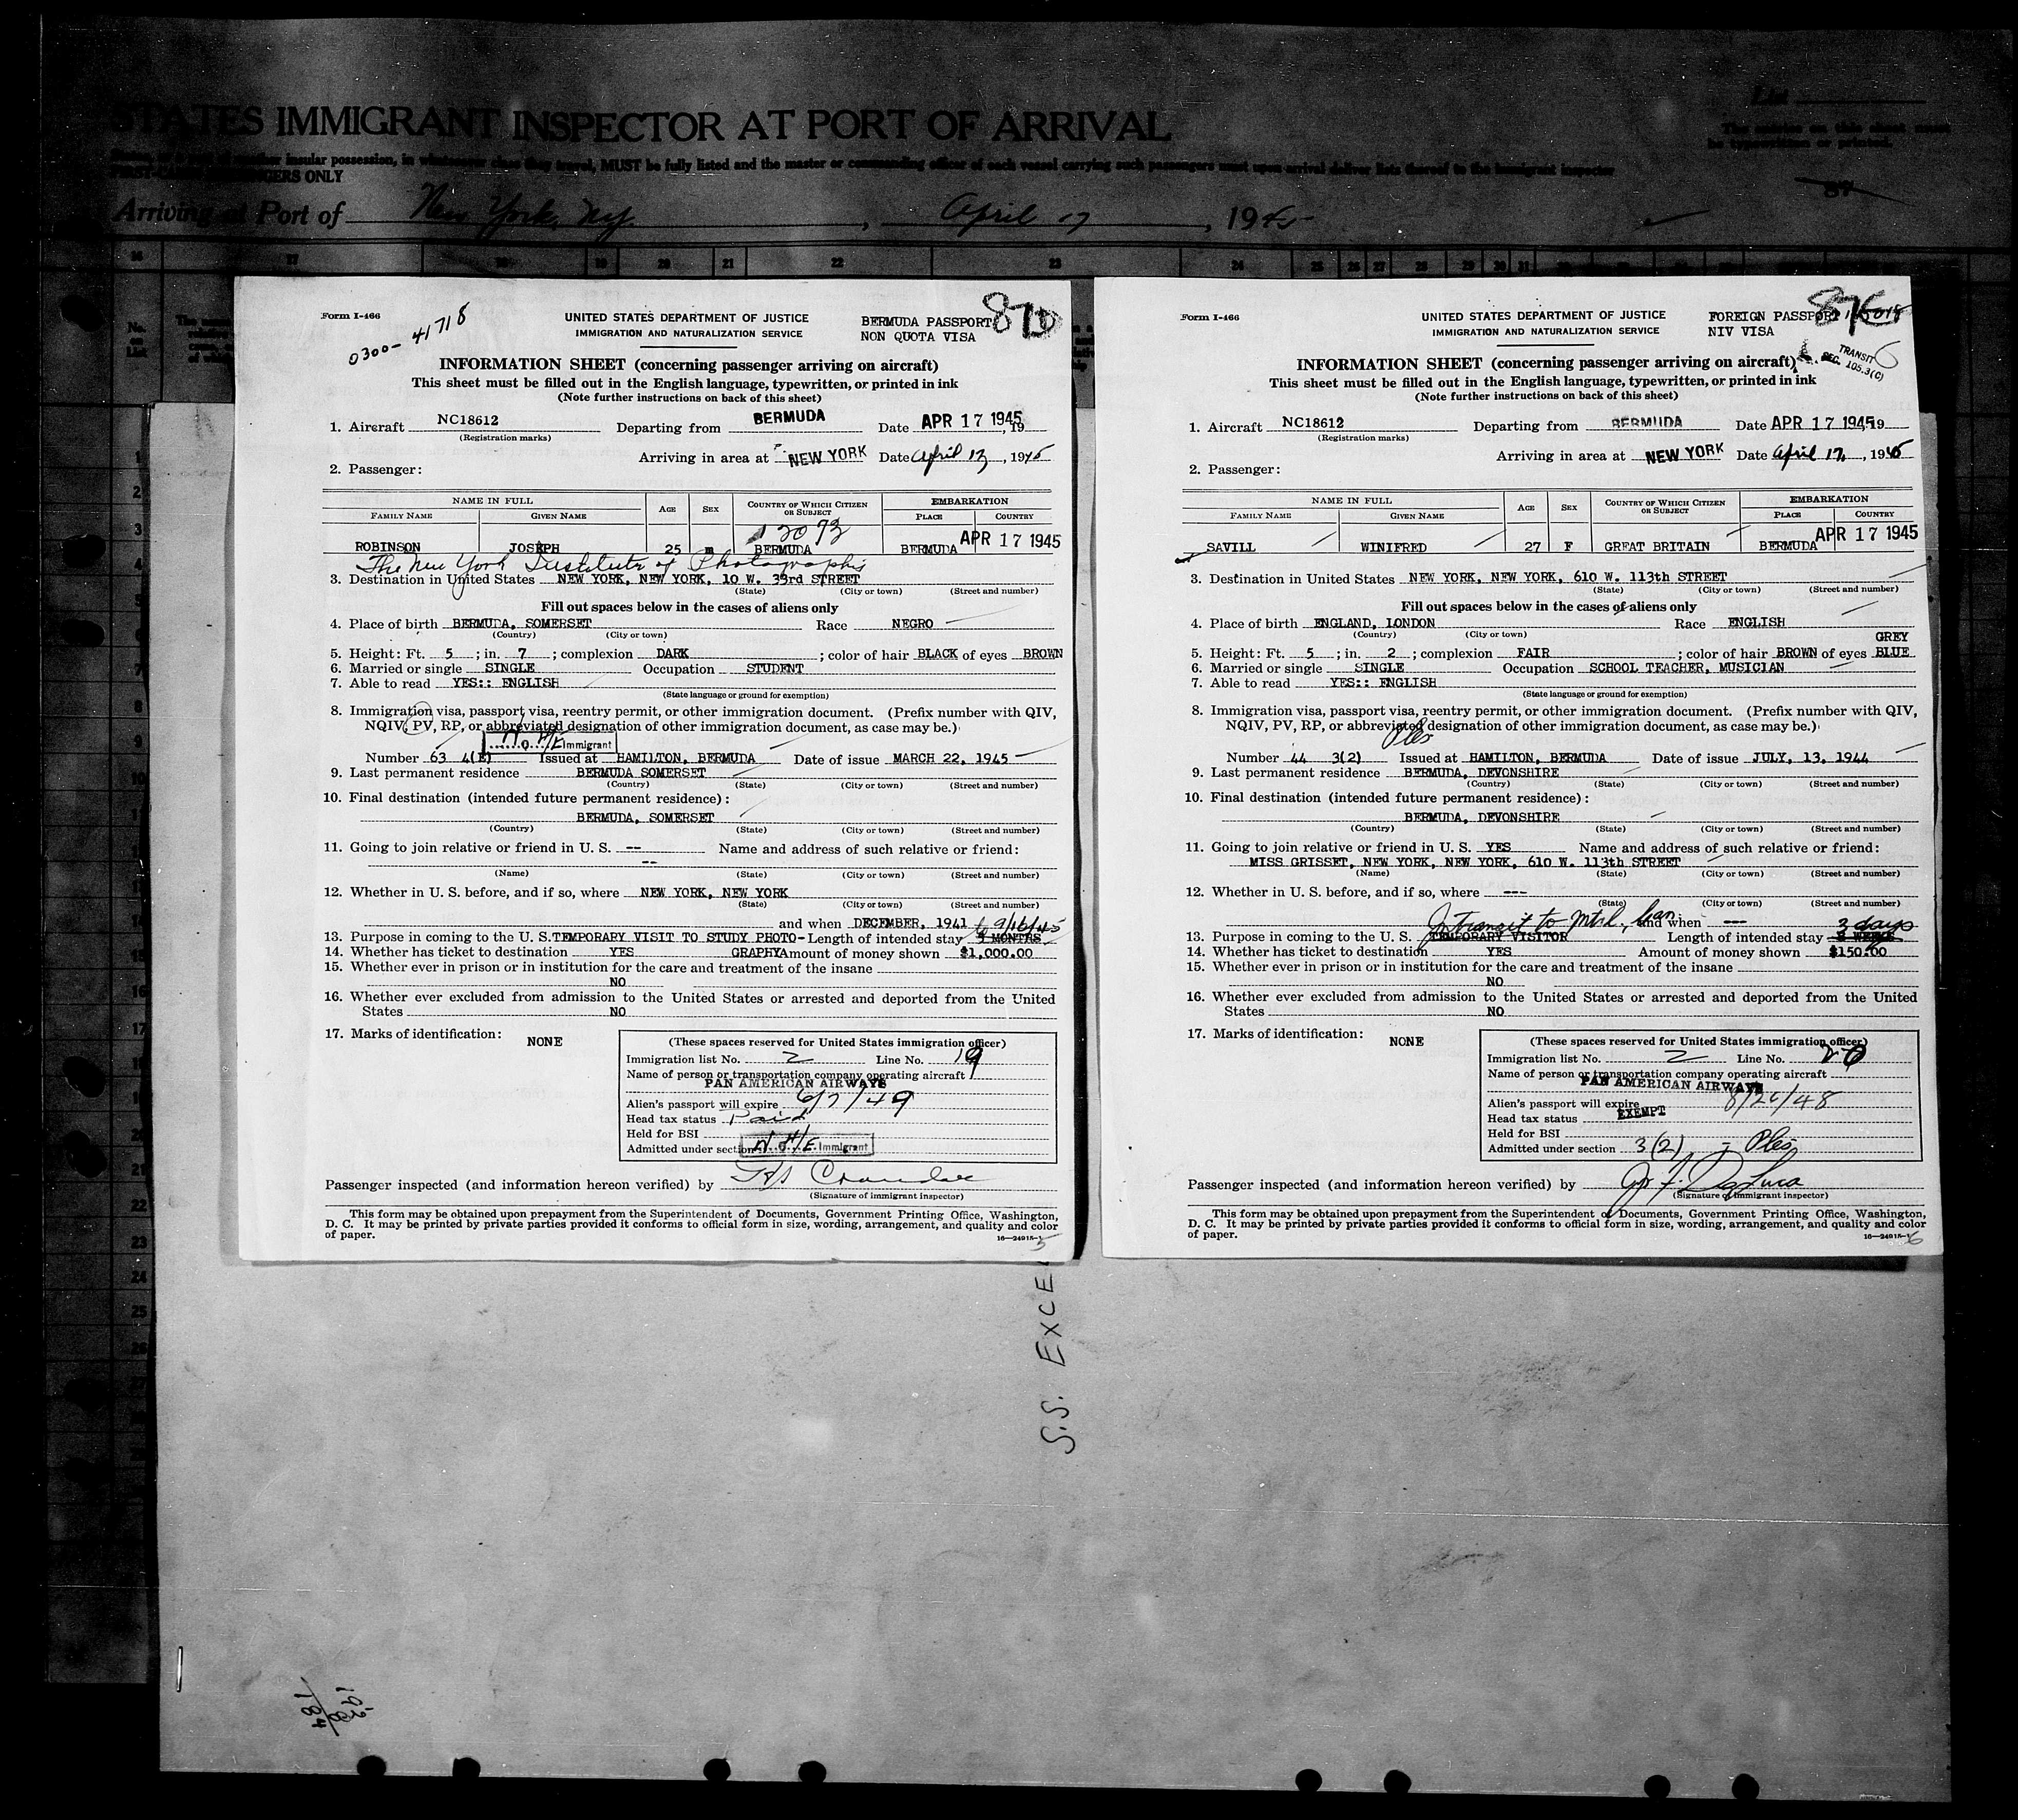 STATES IMMIGRANT INSPECTOR AT PORT OF ARRIVAL
insular possession, in whatsoever class they travel, MUST be fully listed and the master or commanding officer of each vessel carrying such passengers must upon arrival deliver lists thereof to the immigrant inspector
ONLY
Arriving at Port of New York, NY. , April 17 , 1945
Form I-466
0300- 41718
UNITED STATES DEPARTMENT OF JUSTICE
IMMIGRATION AND NATURALIZATION SERVICE
BERMUDA PASSPORT
NON QUOTA VISA
INFORMATION SHEET (concerning passenger arriving on aircraft)
This sheet must be filled out in the English language, typewritten, or printed in ink
(Note further instructions on back of this sheet)
1. Aircraft NC18612 Departing from BERMUDA Date APR 17 1945, 19
(Registration marks)
Arriving in area at NEW YORK Date April 17, 1945
2. Passenger:
NAME IN FULL AGE SEX COUNTRY OF WHICH CITIZEN OR SUBJECT EMBARKATION
FAMILY NAME GIVEN NAME PLACE COUNTRY
ROBINSON JOSEPH 25 m BERMUDA BERMUDA APR 17 1945
The New York Institute of Photography
3. Destination in United States NEW YORK, NEW YORK, 10 W. 33rd STREET
(State) (City or town) (Street and number)
Fill out spaces below in the cases of aliens only
4. Place of birth BERMUDA, SOMERSET Race NEGRO
(Country) (City or town)
5. Height: Ft. 5 ; in. 7 ; complexion DARK ; color of hair BLACK of eyes BROWN
6. Married or single SINGLE Occupation STUDENT
7. Able to read YES:: ENGLISH
(State language or ground for exemption)
8. Immigration visa, passport visa, reentry permit, or other immigration document. (Prefix number with QIV,
NQIV, PV, RP, or abbreviated designation of other immigration document, as case may be.)
Immigrant
Number 63 4(E) Issued at HAMILTON, BERMUDA Date of issue MARCH 22, 1945
9. Last permanent residence BERMUDA SOMERSET
(Country) (State) (City or town) (Street and number)
10. Final destination (intended future permanent residence):
BERMUDA, SOMERSET
(Country) (State) (City or town) (Street and number)
11. Going to join relative or friend in U. S. -- Name and address of such relative or friend:
--
(Name) (State) (City or town) (Street and number)
12. Whether in U. S. before, and if so, where NEW YORK, NEW YORK
(State) (City or town) (Street and number)
and when DECEMBER, 1941 to 9/16/45
13. Purpose in coming to the U. S. TEMPORARY VISIT TO STUDY PHOTO- Length of intended stay MONTHS
14. Whether has ticket to destination YES GRAPHY Amount of money shown $1,000.00
15. Whether ever in prison or in institution for the care and treatment of the insane
NO
16. Whether ever excluded from admission to the United States or arrested and deported from the United
States NO
17. Marks of identification: NONE
(These spaces reserved for United States immigration officer)
Immigration list No. 2 Line No. 19
Name of person or transportation company operating aircraft
PAN AMERICAN AIRWAYS
Alien's passport will expire 6/7/49
Head tax status Paid
Held for BSI
Admitted under section Immigrant
Passenger inspected (and information hereon verified) by
(Signature of immigrant inspector)
This form may be obtained upon prepayment from the Superintendent of Documents, Government Printing Office, Washington,
D. C. It may be printed by private parties provided it conforms to official form in size, wording, arrangement, and quality and color
of paper.
16—24915-1
5
Form I-466
UNITED STATES DEPARTMENT OF JUSTICE
IMMIGRATION AND NATURALIZATION SERVICE
FOREIGN PASSPORT
NIV VISA
TRANSIT
SEC. 105.3(C)
INFORMATION SHEET (concerning passenger arriving on aircraft)
This sheet must be filled out in the English language, typewritten, or printed in ink
(Note further instructions on back of this sheet)
1. Aircraft NC18612 Departing from BERMUDA Date APR 17 1945, 19
(Registration marks)
Arriving in area at NEW YORK Date April 17, 1945
2. Passenger:
NAME IN FULL AGE SEX COUNTRY OF WHICH CITIZEN OR SUBJECT EMBARKATION
FAMILY NAME GIVEN NAME PLACE COUNTRY
SAVILL WINIFRED 27 F GREAT BRITAIN BERMUDA APR 17 1945
3. Destination in United States NEW YORK, NEW YORK, 610 W. 113th STREET
(State) (City or town) (Street and number)
Fill out spaces below in the cases of aliens only
4. Place of birth ENGLAND, LONDON Race ENGLISH
(Country) (City or town)
GREY
5. Height: Ft. 5 ; in. 2 ; complexion FAIR ; color of hair BROWN of eyes BLUE
6. Married or single SINGLE Occupation SCHOOL TEACHER, MUSICIAN
7. Able to read YES:: ENGLISH
(State language or ground for exemption)
8. Immigration visa, passport visa, reentry permit, or other immigration document. (Prefix number with QIV,
NQIV, PV, RP, or abbreviated designation of other immigration document, as case may be.)
Number 44 3(2) Issued at HAMILTON, BERMUDA Date of issue JULY, 13, 1944
9. Last permanent residence BERMUDA, DEVONSHIRE
(Country) (State) (City or town) (Street and number)
10. Final destination (intended future permanent residence):
BERMUDA, DEVONSHIRE
(Country) (State) (City or town) (Street and number)
11. Going to join relative or friend in U. S. YES Name and address of such relative or friend:
MISS GRISSET, NEW YORK, NEW YORK, 610 W. 113th STREET
(Name) (State) (City or town) (Street and number)
12. Whether in U. S. before, and if so, where ---
(State) (City or town) (Street and number)
In transit to Mtrl., Can. and when --- 3 days
13. Purpose in coming to the U. S. TEMPORARY VISITOR Length of intended stay
14. Whether has ticket to destination YES Amount of money shown $150.00
15. Whether ever in prison or in institution for the care and treatment of the insane
NO
16. Whether ever excluded from admission to the United States or arrested and deported from the United
States NO
17. Marks of identification: NONE
(These spaces reserved for United States immigration officer)
Immigration list No. 2 Line No. 20
Name of person or transportation company operating aircraft
PAN AMERICAN AIRWAYS
Alien's passport will expire 8/26/48
Head tax status EXEMPT
Held for BSI
Admitted under section 3(2)
Passenger inspected (and information hereon verified) by
(Signature of immigrant inspector)
This form may be obtained upon prepayment from the Superintendent of Documents, Government Printing Office, Washington,
D. C. It may be printed by private parties provided it conforms to official form in size, wording, arrangement, and quality and color
of paper.
16—24915-1
6
S.S.